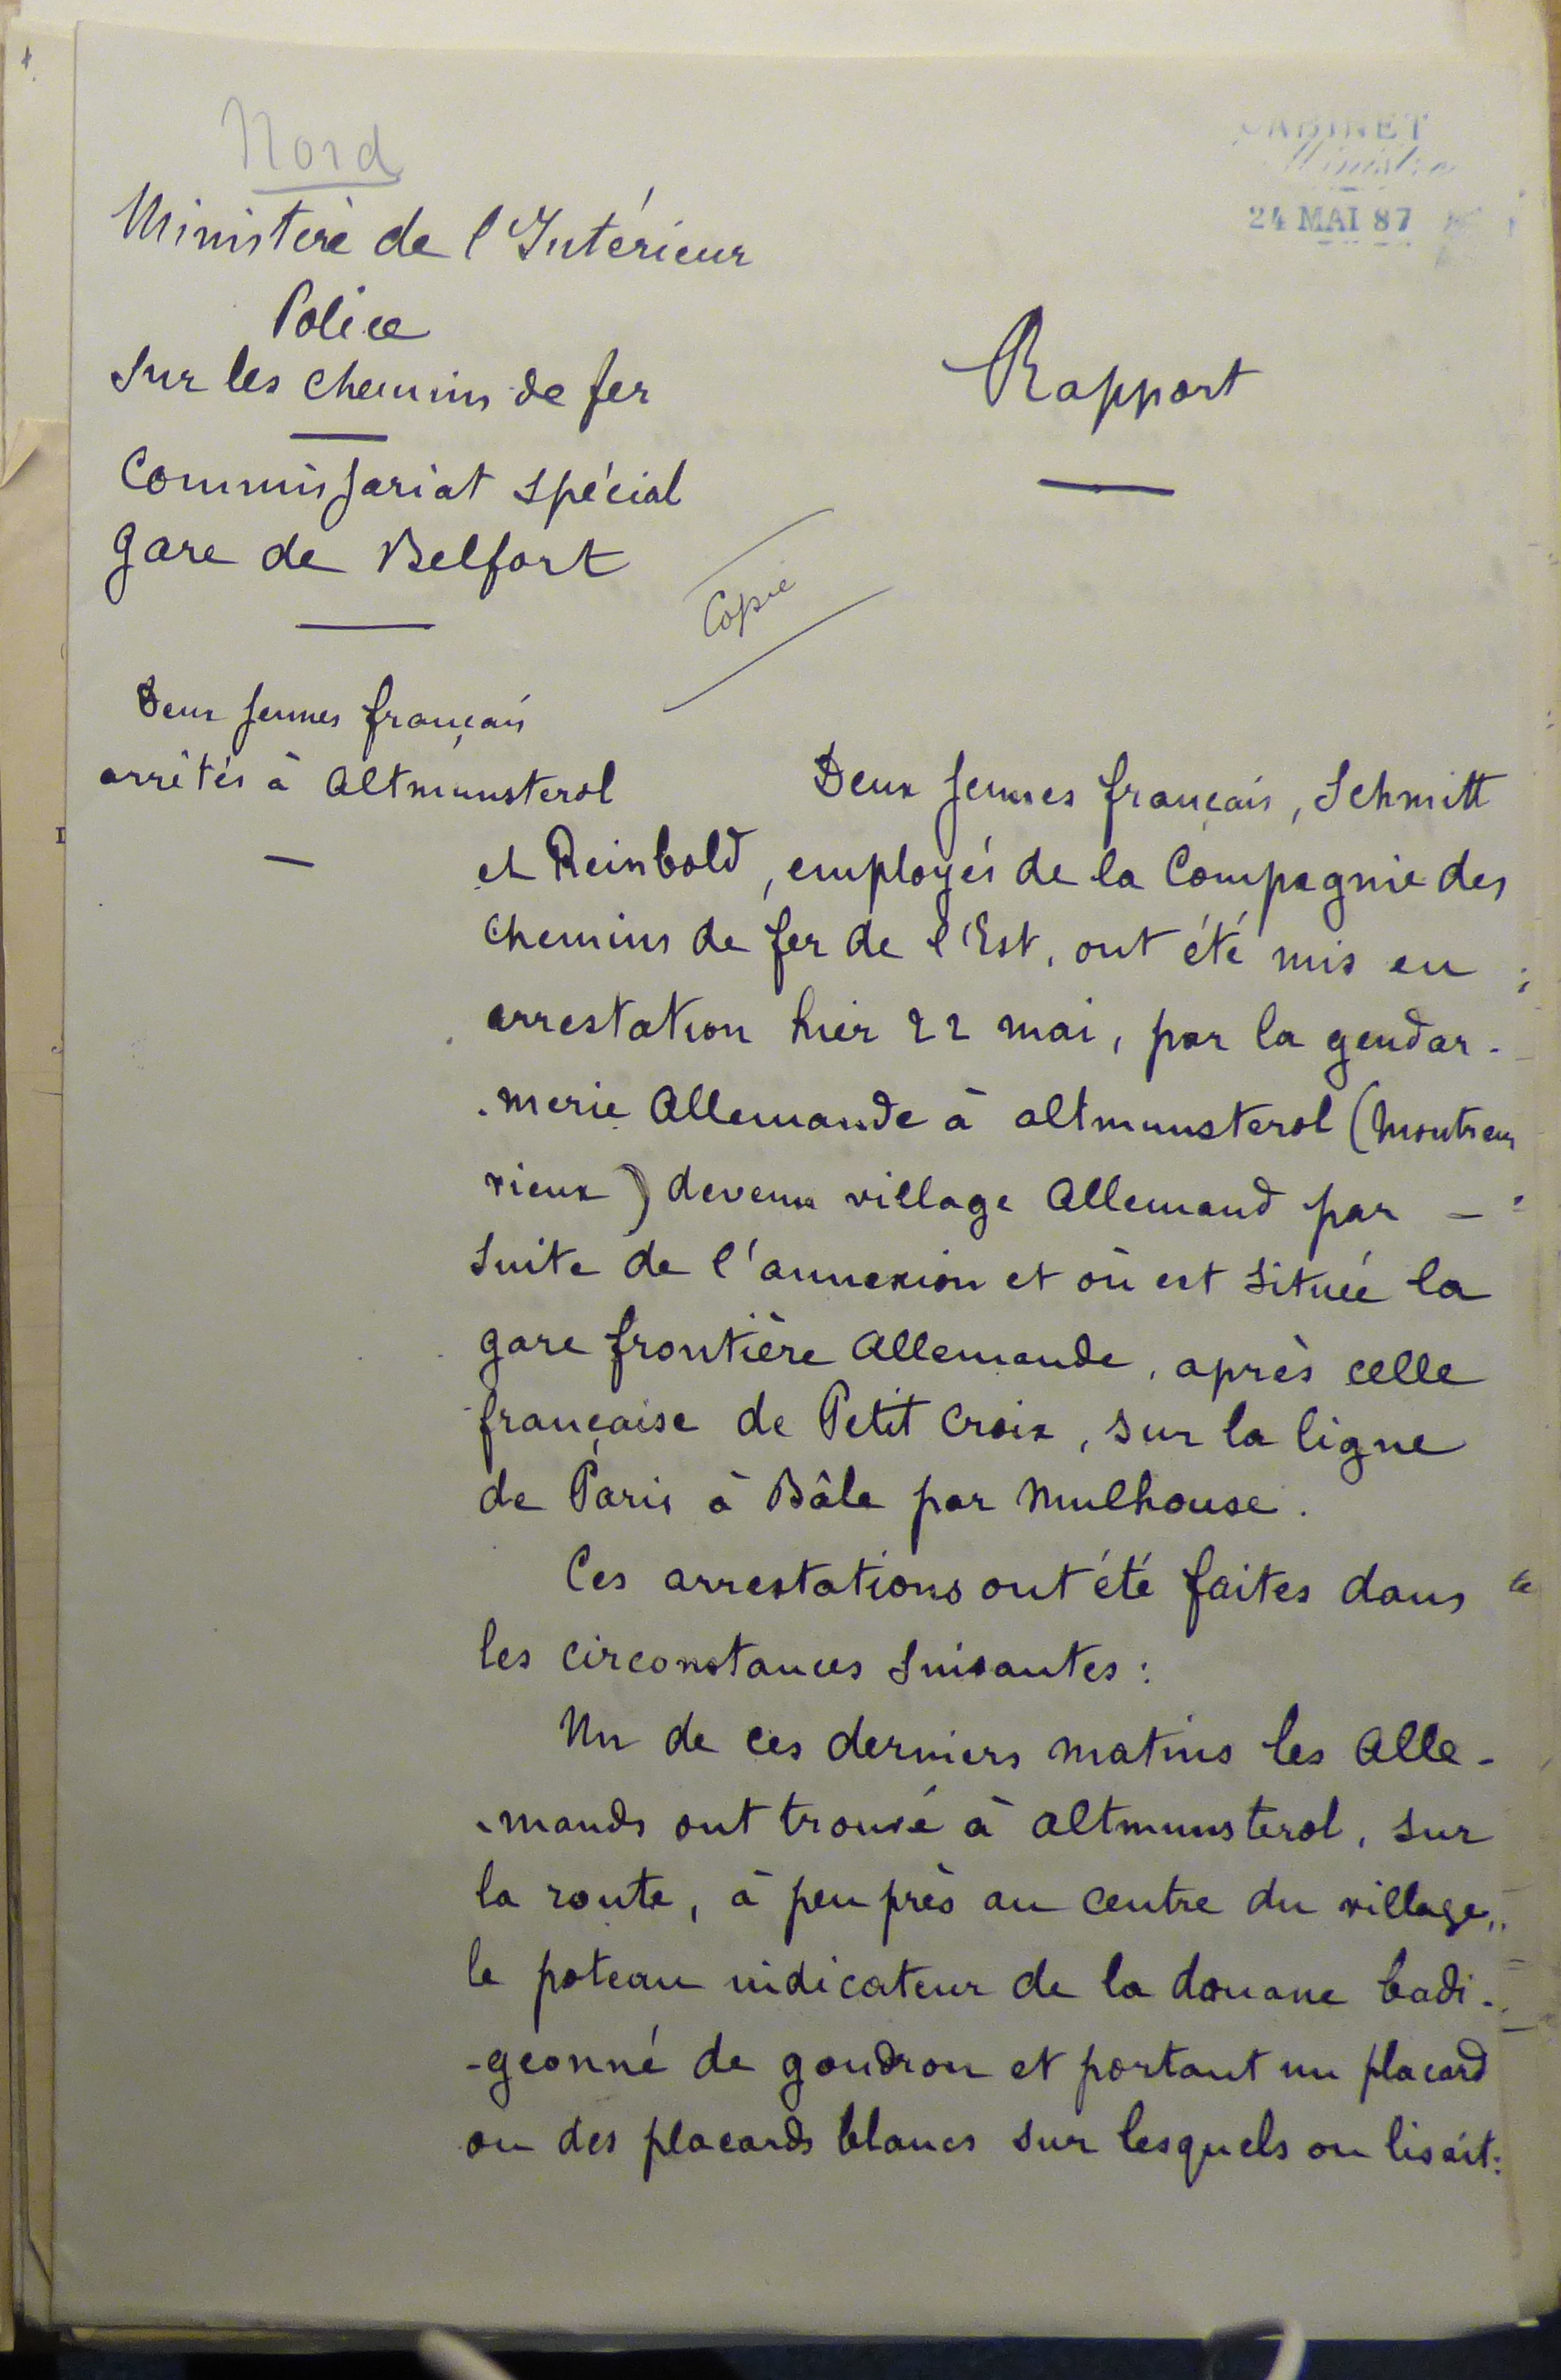 Nord
CABINET
24 MAI 87
Ministère de l'Intérieur
Police
sur les chemins de fer
Commissariat spécial
gare de Belfort
Rapport
Copie
Deux jeunes français
arrêtés à Altmunsterol
Deux jeunes français, Schmitt
et Reinbold, employés de la Compagnie des
chemins de fer de l'Est, ont été mis en
arrestation hier 22 mai, par la gendar-
-merie Allemande à Altmunsterol (Montreux
vieux) devenu village Allemand par -
suite de l'annexion et où est située la
gare frontière Allemande, après celle
française de Petit Croix, sur la ligne
de Paris à Bâle par Mulhouse.
Ces arrestations ont été faites dans
les circonstances suivantes :
Un de ces derniers matins les Alle-
-mands ont trouvé à Altmunsterol, sur
la route, à peu près au centre du village,
le poteau indicateur de la douane badi-
-geonné de goudron et portant un placard
ou des placards blancs sur lesquels on lisait: